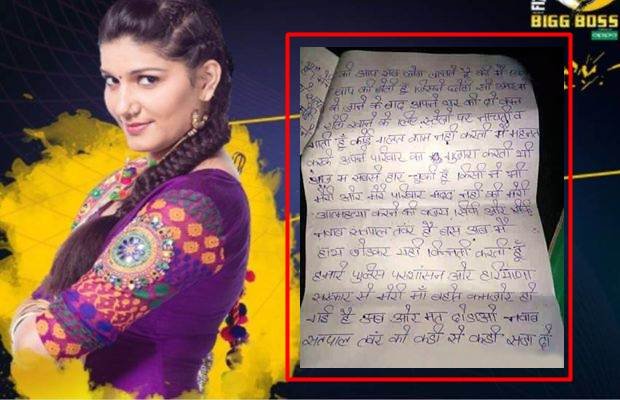 BIGG BOSS
आप सब लोग जानते है की मैं
बाप की बेटी हूँ जिसने छोटी सी
के जाने के बाद अपने घर को दो वक्त
रोटी खाने के लिए स्टेजो पर नाचती व
गाती हूँ कोई गलत काम नही करती मै महनत
करके अपने परिवार का गुजारा करती थी
आज मै सबसे हार चुकी हूँ किसी ने भी
मेरी और मेरे परिवार मदद नही की मेरी
आत्महत्या करने की वजह सिर्फ और सिर्फ
नवाब सतपाल तंवर है बस अब मै
हाथ जोडकर यही विनती करती हूँ
हमारे पुलिस प्रशासन और हरियाणा
सरकार से मेरी माँ बहोत कमजोर हो
गई है अब और मत दौडाओ नवाब
सतपाल तंवर को कडी से कडी सजा दो